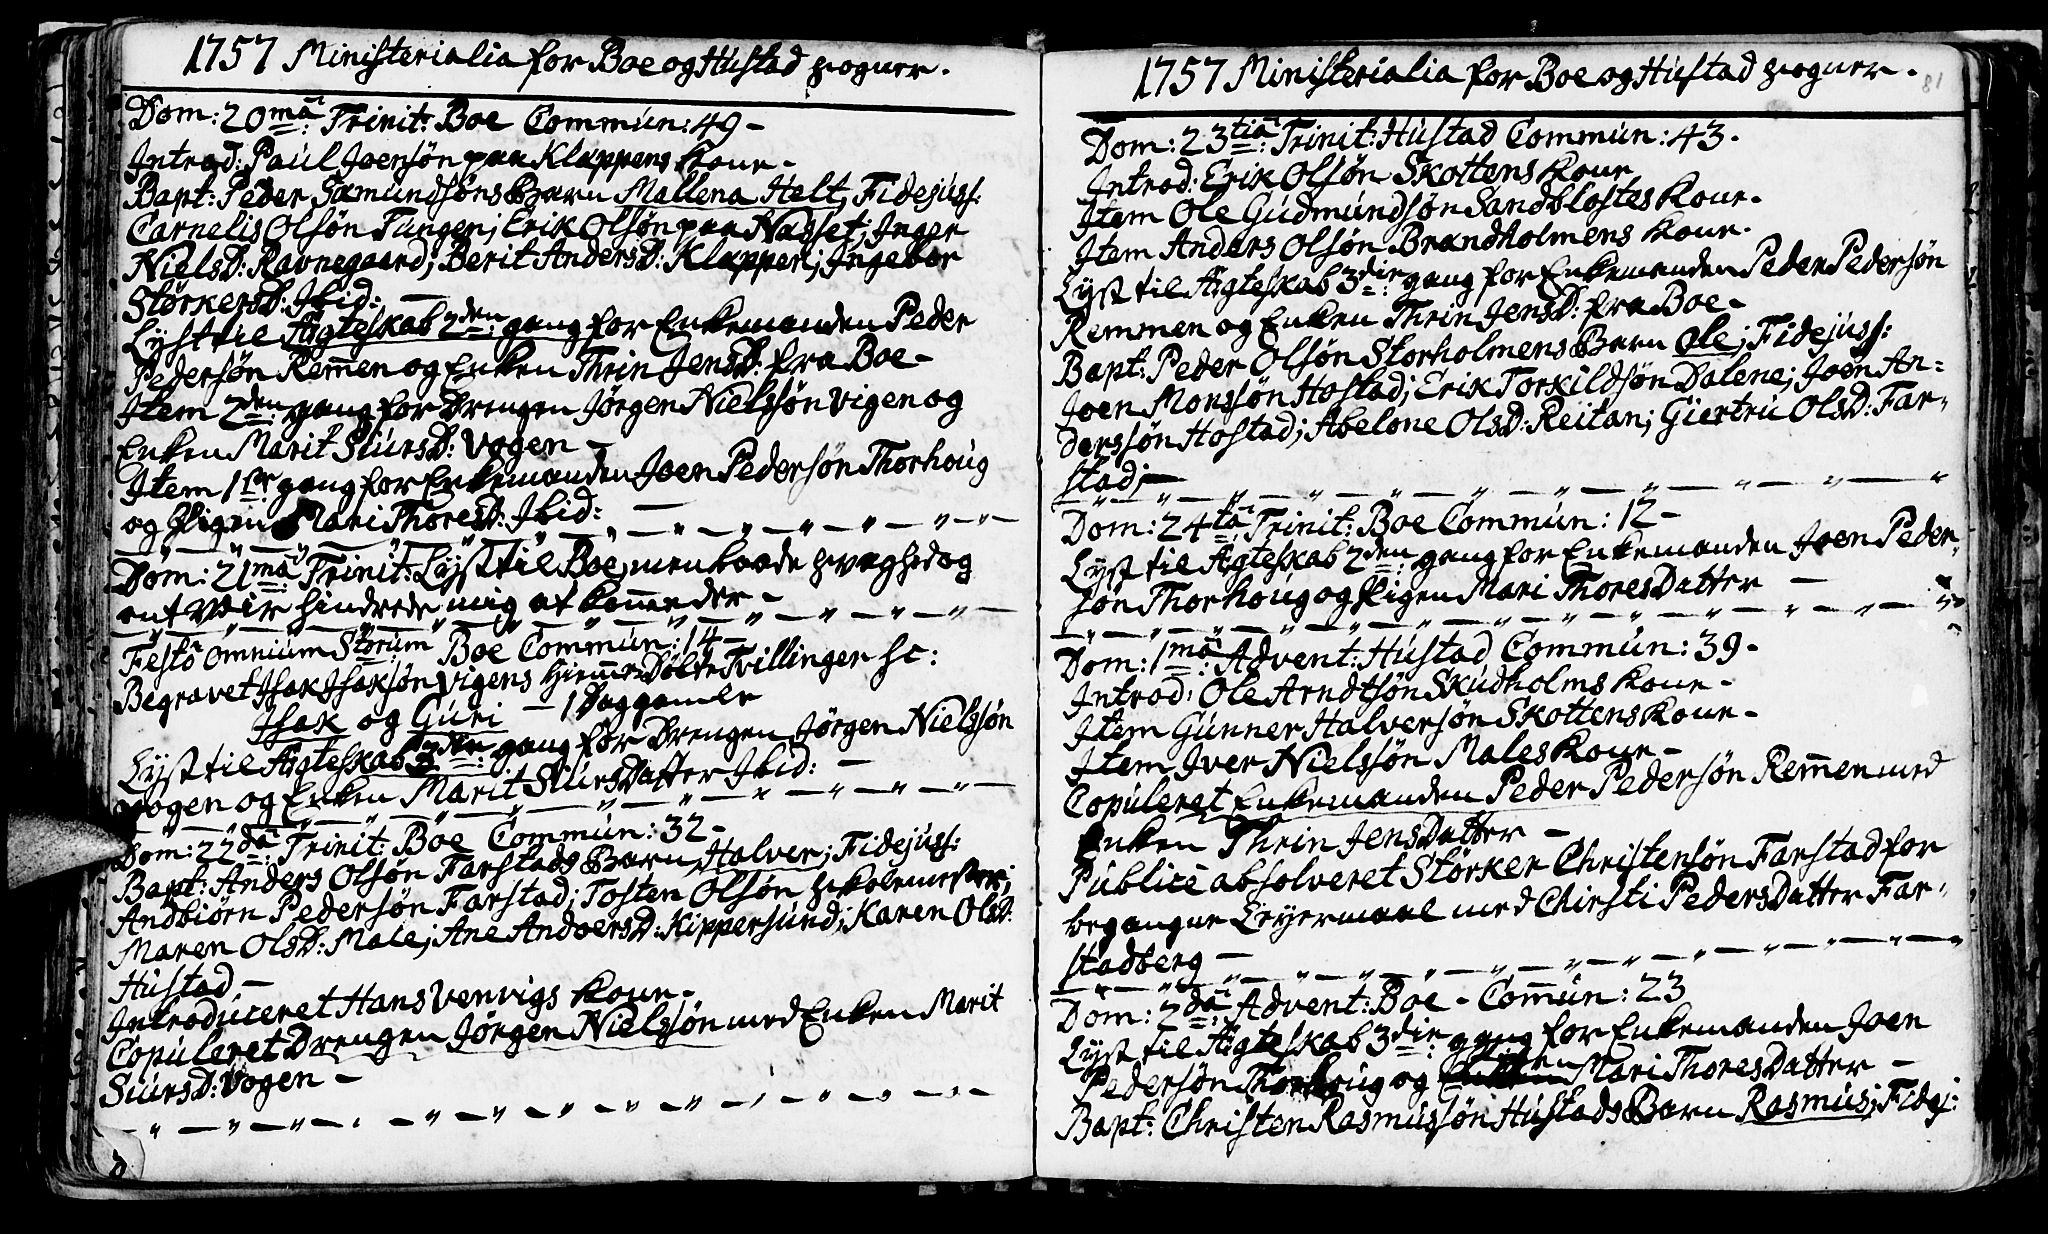 1757 Ministerialia for Boe og Hustad Sogner.
Dom: 20mâ Trinit: Boe Commun: 49 -
Introd: Paul Joensøn paa Klappens Kone -
Bapt: Peder Sæmundsøns Barn Mallena Helt; Fidejuss:
Carnelis Olsøn Tungen; Erik Olsøn paa Nasset; Inger
NielsD: Ravnegaard; Berit AndersD: Klappen; Ingebor
StørkersD: Ibid: -
Lyst til Ægteskab 2den gang for Enkemanden Peder
Pedersøn Remen og Enken Thrin JensD: fra Boe -
Item 2den gang for Drengen Jørgen Nielssøn Vigen og
Enken Marit SiursD: Vogen -
Item 1ste gang for Enkemanden Joen Pedersøn Thorhoug
og Pigen Mari ThoresD: Ibid: -
Dom: 21mâ Trinit: Lyst til Boe, men baade svaghed og
ont Veir hindrede mig at kome der -
Festô Omnium Storum Boe Commun: 14 -
Begravet Isak Isaksøn Vigens Hiemmedøbte Tvillinger sc:
Isak og Guri - 1 Dag gamle
Lyst til Ægteskab 3die gang for Drengen Jørgen Nielssøn
Vogen og Enken Marit SiursDatter Ibid: -
Dom: 22dâ Trinit: Boe Commun: 32 -
Bapt: Anders Olsøn Farstads Barn Halver; Fidejuss:
Andbiørn Pedersøn Farstad; Tosten Olsøn Skolemester;
Maren OlsD: Male; Ane AndersD: Kippersund; Karen OlsD:
Hustad -
Introduceret Hans Venvigs Kone -
Copuleret Drengen Jørgen Nielssøn med Enken Marit
SiursD: Vogen -
1757 Ministerialia for Boe og Hustad Sogner.
81
Dom: 23tiâ Trinit: Hustad Commun: 43.
Introd: Erik Olsøn Skottens Kone
Item Ole Gudmundsøn Sandblostes Kone -
Item Anders Olsøn Brandholmens Kone.
Lyst til Ægteskab 3die gang for Enkemanden Peder Pedersøn
Remmen og Enken Thrin JensD: fra Boe -
Bapt: Peder Olsøn Storholmens Barn Ole; Fidejuss:
Joen Monssøn Hostad; Erik Torkildsøn Dalene; Joen An=
derssøn Hostad; Abelone OlsD: Reitan; Giertru OlsD: Far=
stad; -
Dom: 24tâ Trinit: Boe Commun: 12 -
Lyst til Ægteskab 2den gang for Enkemanden Joen Peder=
søn Thorhoug og Pigen Mari ThoresDatter -
Dom: 1mâ Advent: Hustad Commun: 39 -
Introd: Ole Arndtsøn Skudholms Kone -
Item Gunner Halversøn Skottens Kone -
Item Iver Nielssøn Males Kone -
Copuleret Enkemanden Peder Pedersøn Remen med
Enken Thrin JensDatter -
Publicè absolveret Størker Christensøn Farstad for
begangne Leyermaal med Chirsti PedersDatter Far=
stadberg -
Dom: 2dâ Advent: Boe - Comun: 23
Lyst til Ægteskab 3die gang for Enkemanden Joen
Pedersøn Thorhoug og Mari ThoresDatter -
Bapt: Christen Rasmussøn Hustads Barn Rasmus; Fidej: